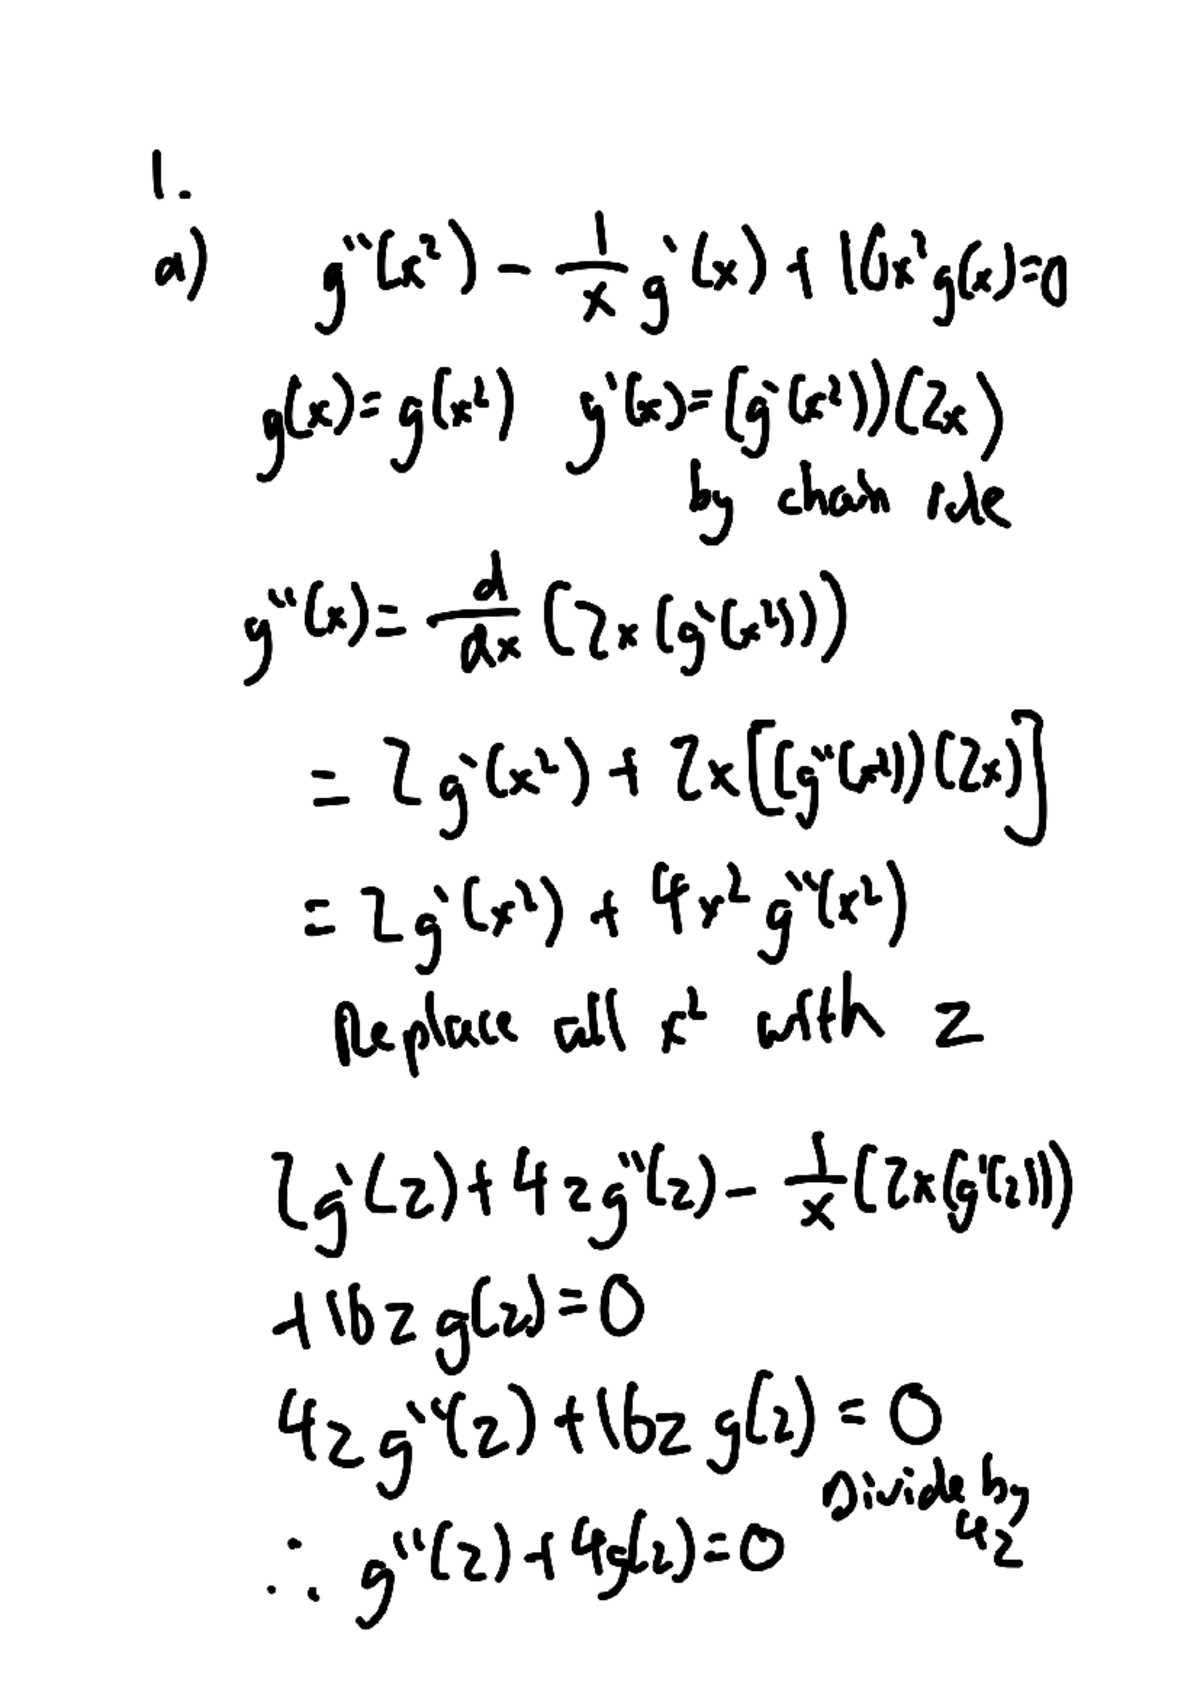 1.
a) g''(x²) - 1/x g'(x) + 16x² g(x)=0
g(x)=g(x²) g'(x)=(g'(x²))(2x)
by chain rule
g''(x)= d/dx (2x(g'(x²)))
= 2g'(x²) + 2x[(g''(x²))(2x)]
= 2g'(x²) + 4x² g''(x²)
Replace all x² with z
2g'(z)+4zg''(z)- 1/x (2x(g'(z)))
+16z g(z)=0
4z g''(z)+16z g(z) = 0
Divide by
4z
∴ g''(z)+4g(z)=0